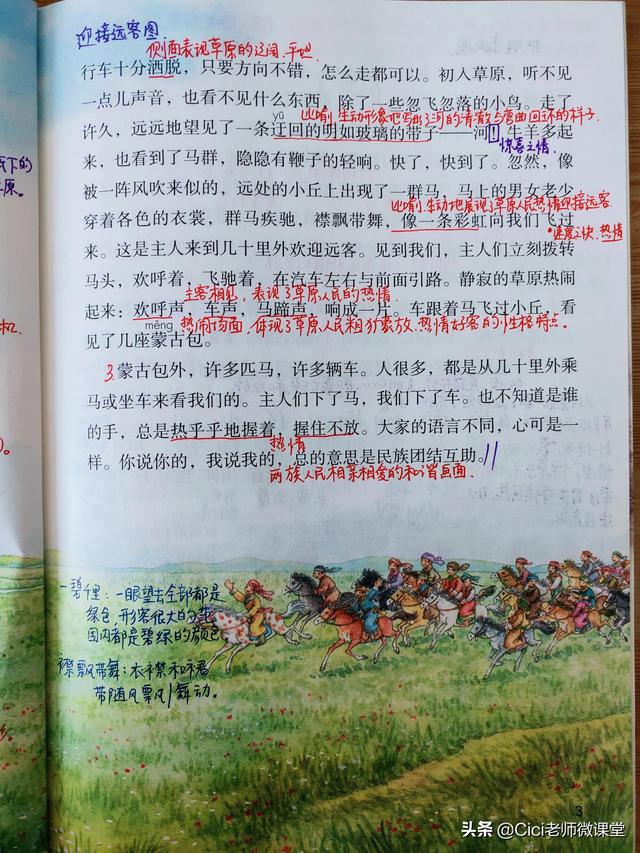 迎接远客图
侧面表现草原的辽阔、平坦
行车十分洒脱，只要方向不错，怎么走都可以。初入草原，听不见
一点儿声音，也看不见什么东西，除了一些忽飞忽落的小鸟。走了
yū
比喻，生动形象地写出了河的清澈与弯曲回环的样子
许久，远远地望见了一条迂回的明如玻璃的带子——河！牛羊多起
惊喜之情
下的
来，也看到了马群，隐隐有鞭子的轻响。快了，快到了。忽然，像
原。
被一阵风吹来似的，远处的小丘上出现了一群马，马上的男女老少
比喻，生动地展现了草原人民热情迎接远客
穿着各色的衣裳，群马疾驰，襟飘带舞，像一条彩虹向我们飞过
速度之快、热情
来。这是主人来到几十里外欢迎远客。见到我们，主人们立刻拨转
马头，欢呼着，飞驰着，在汽车左右与前面引路。静寂的草原热闹
主客相见，表现了草原人民的热情
起来：欢呼声，车声，马蹄声，响成一片。车跟着马飞过小丘，看
měng
热闹场面，体现了草原人民粗犷豪放、热情好客的性格特点。
机
见了几座蒙古包。
3.蒙古包外，许多匹马，许多辆车。人很多，都是从几十里外乘
马或坐车来看我们的。主人们下了马，我们下了车。也不知道是谁
的手，总是热乎乎地握着，握住不放。大家的语言不同，心可是一
热情
)。
样。你说你的，我说我的，总的意思是民族团结互助。
两族人民相亲相爱的和谐画面.
一碧千里：一眼望去全部都是
绿色，形容很大的范
围内都是碧绿的颜色
襟飘带舞：衣襟和裙
带随风飘舞动。
3
头条 @Cici老师微课堂